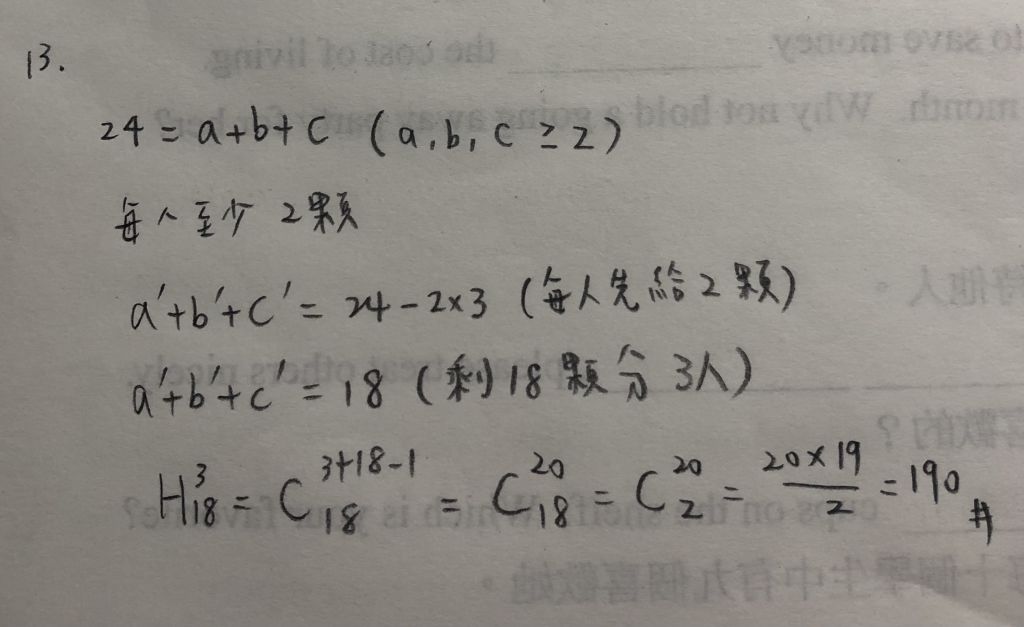 13.
24 = a+b+c (a,b,c ≥ 2)
每人至少 2顆
a'+b'+c' = 24-2×3 (每人先給2顆)
a'+b'+c' = 18 (剩18顆分3人)
H³₁₈ = C³⁺¹⁸⁻¹₁₈ = C²⁰₁₈ = C²⁰₂ = 20×19/2 = 190 #